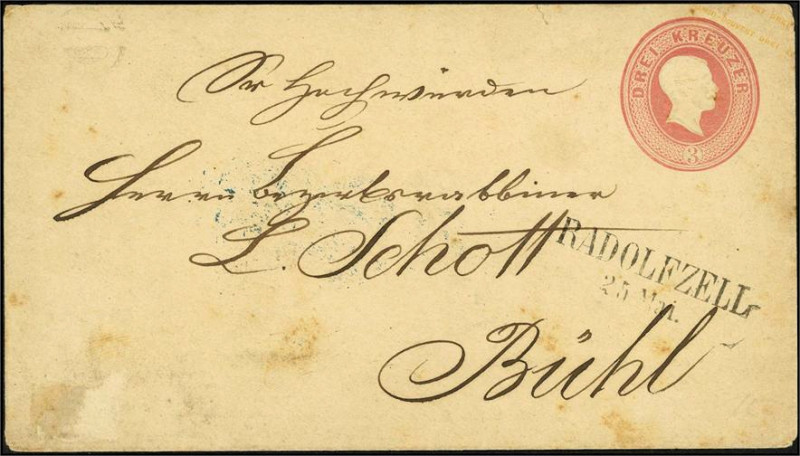 DREI KREUZER
3
Sr Hochwürden
Herrn Bezirksrabbiner
L. Schott
RADOLFZELL
25 Mai.
Bühl